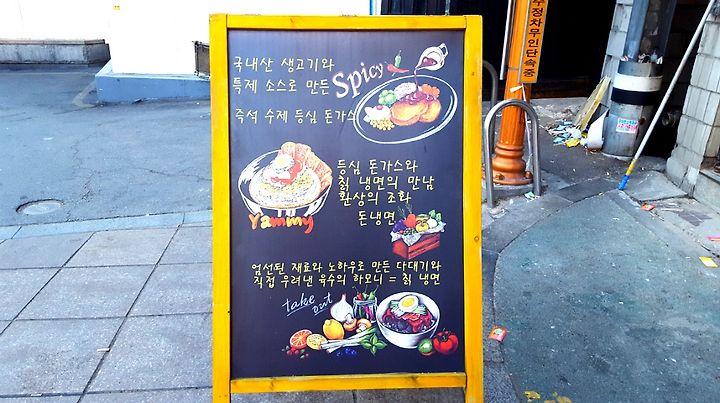 국내산 생고기와
특제 소스로 만든
Spicy
즉석 수제 등심 돈가스
등심 돈가스와
칡 냉면의 만남
환상의 조화
돈냉면
Yammy
엄선된 재료와 노하우로 만든 다대기와
직접 우려낸 육수의 하모니 = 칡 냉면
take
out
주정차무인단속중